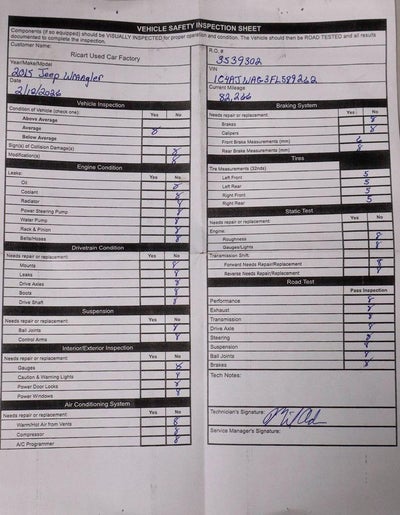 VEHICLE SAFETY INSPECTION SHEET
Components (if so equipped) should be VISUALLY INSPECTED for proper operation and condition. The Vehicle should then be ROAD TESTED and all results
documented to complete the inspection.
Customer Name:
Ricart Used Car Factory
Year/Make/Model
2015 Jeep Wrangler
Date
2/12/2026
Vehicle Inspection
Condition of Vehicle (check one): Yes No
Above Average
Average
Below Average
Sign(s) of Collision Damage(s)
Modification(s)
Engine Condition
Leaks: Yes No
Oil
Coolant
Radiator
Power Steering Pump
Water Pump
Rack & Pinion
Belts/Hoses
Drivetrain Condition
Needs repair or replacement: Yes No
Mounts
Leaks
Drive Axles
Boots
Drive Shaft
Suspension
Needs repair or replacement: Yes No
Ball Joints
Control Arms
Interior/Exterior Inspection
Needs repair or replacement: Yes No
Gauges
Caution & Warning Lights
Power Door Locks
Power Windows
Air Conditioning System
Needs repair or replacement: Yes No
Warm/Hot Air from Vents
Compressor
A/C Programmer
R.O. #
3539302
VIN
1C4AJWAG3FL589262
Current Mileage
82,266
Braking System
Needs repair or replacement: Yes No
Brakes
Calipers
Front Brake Measurements (mm) 6
Rear Brake Measurements (mm) 8
Tires
Tire Measurements (32nds)
Left Front 5
Left Rear 5
Right Front 5
Right Rear 5
Static Test
Needs repair or replacement: Yes No
Engine:
Roughness
Gauges/Lights
Transmission Shift:
Forward Needs Repair/Replacement
Reverse Needs Repair/Replacement
Road Test
Pass Inspection
Performance
Exhaust
Transmission
Drive Axle
Steering
Suspension
Ball Joints
Brakes
Tech Notes:
Technician's Signature:
Service Manager's Signature: